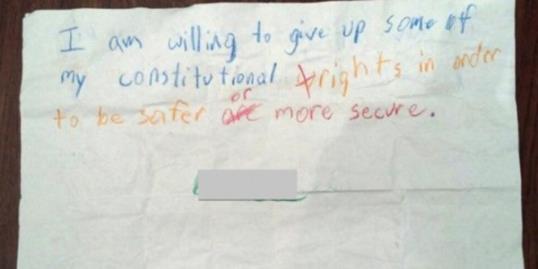 I am willing to give up some of
my constitutional rights in order
to be safer or more secure.